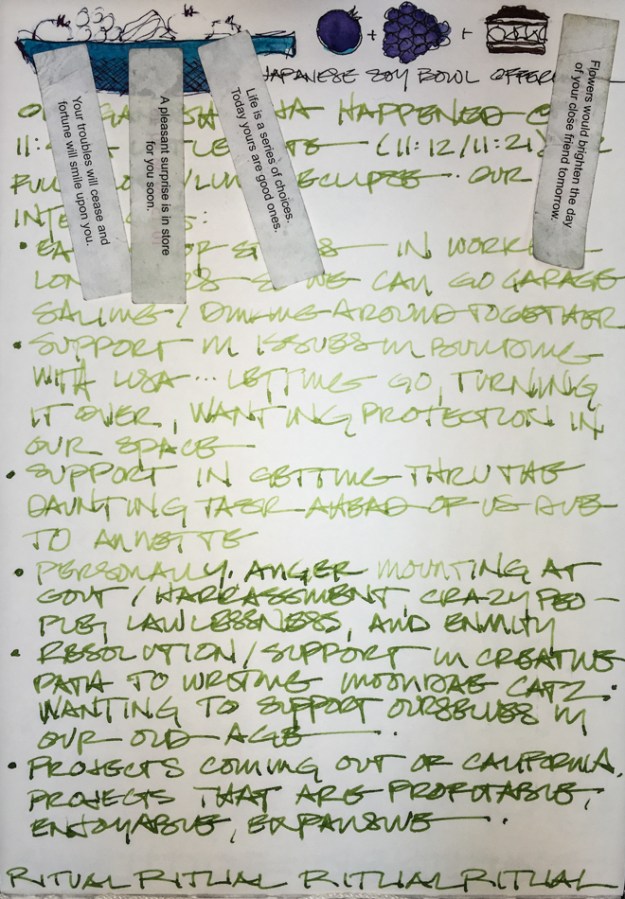 JAPANESE SOY BOWL
Your troubles will cease and
fortune will smile upon you.
A pleasant surprise is in store
for you soon.
Life is a series of choices.
Today yours are good ones.
Flowers would brighten the day
of your close friend tomorrow.
HAPPENED
(11:12/11:21)
ECLIPSE. OUR
IN
WE CAN GO GARAGE
SALING / DINKING AROUND TOGETHER
• SUPPORT IN ISSUES IN BUILDING
WITH LISA... LETTING GO, TURNING
IT OVER, WANTING PROTECTION IN
OUR SPACE
• SUPPORT IN GETTING THRU THE
DAUNTING TASK AHEAD OF US DUE
TO ANNETTE
• PERSONALLY, ANGER MOUNTING AT
GOVT / HARRASSMENT, CRAZY PEO-
PLE, LAWLESSNESS, AND ENMITY
• RESOLUTION/SUPPORT IN CREATIVE
PATH TO WRITING CATZ.
WANTING TO SUPPORT OURSELVES IN
OUR OLD AGE
• PROJECTS COMING OUT OF CALIFORNIA,
PROJECTS THAT ARE PROFITABLE,
ENJOYABLE, EXPANSIVE
RITUAL RITUAL RITUAL RITUAL